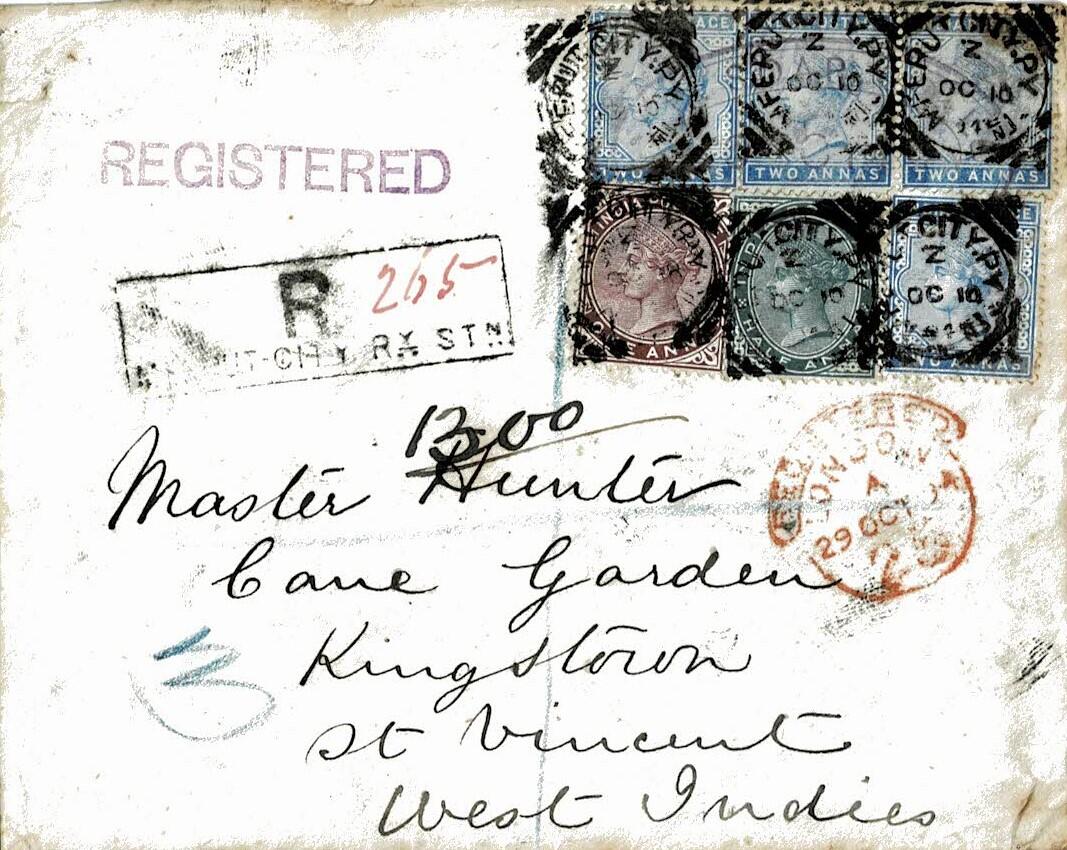 REGISTERED
R 265
CITY RY STN
TWO ANNAS
TWO ANNAS
TWO ANNAS
CITY.PY
OC 10
CITY.PY
Z
OC 10
ONE ANNA
HALF ANNA
TWO ANNAS
CITY
OC 10
CITY.PY
Z
OC 10
LONDON
A
29 OC
1300
Master Hunter
Cane Garden
Kingstown
St Vincent
West Indies